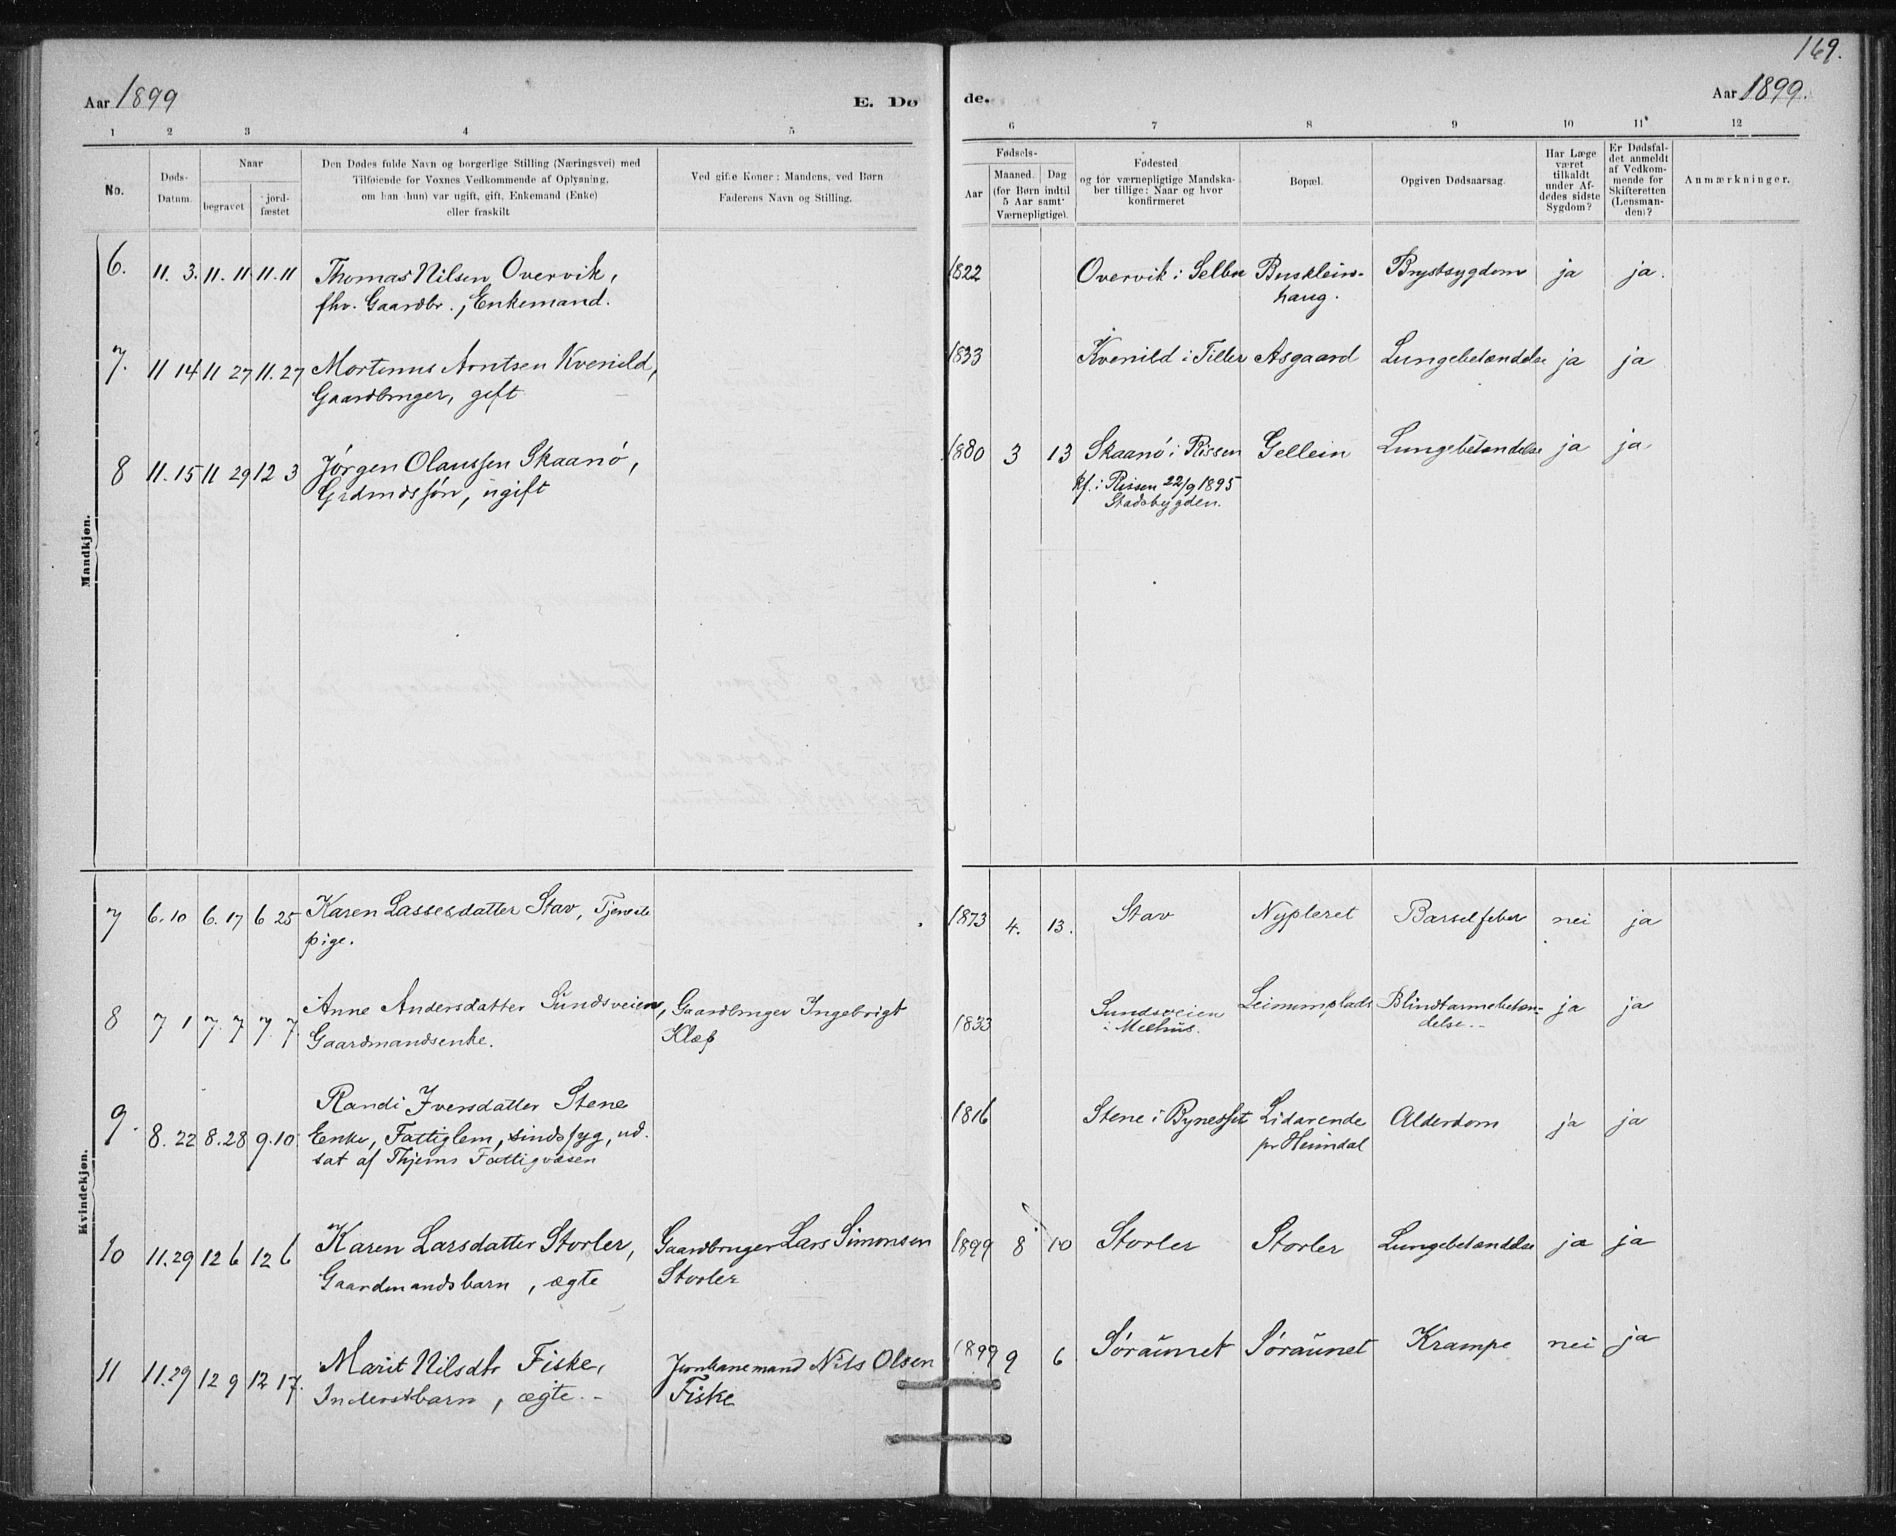 169.
Aar 1899
E. Dø
de.
Aar 1899.
1 2 3 4 5
6 7 8 9 10 11 12
No.
Døds-
Datum.
Naar
begravet
jord-
fæstet
Den Dødes fulde Navn og borgerlige Stilling (Næringsvei) med
Tilføiende for Voxnes Vedkommende af Oplysning,
om han (hun) var ugift, gift, Enkemand (Enke)
eller fraskilt
Ved gifte Koner: Mandens, ved Børn
Faderens Navn og Stilling.
Fødsels-
Aar
Maaned. Dag
(for Børn indtil
5 Aar samt
Værnepligtige).
Fødested
og for værnepligtige Mandska-
ber tillige: Naar og hvor
konfirmeret
Bopæl.
Opgiven Dødsaarsag.
Har Læge
været
tilkaldt
under Af-
dødes sidste
Sygdom?
Er Dødsfal-
det anmeldt
af Vedkom-
mende for
Skifteretten
(Lensman-
den)?
Anmærkninger.
Mandkjøn.
6. 11. 3. 11. 11 11. 11 Thomas Nilsen Overvik, 1822 Overvik i Selbu Busklein- Brystsygdom ja ja.
fhv. Gaardbr., Enkemand. haug.
7. 11 14 11 27 11. 27 Martinus Arntsen Kvenild, 1833 Kvenild i Tiller Asgaard Lungebetændelse ja ja
Gaardbruger, gift
8 11. 15 11 29 12 3 Jørgen Olaussen Skaanø, 1880 3 13 Skaanø i Rissen Gellein Lungebetændelse ja ja
Grdmdssøn, ugift kf. i Rissen 22/9 1895
Stadsbygden.
Kvindekjøn.
7 6. 10 6. 17 6 25 Karen Lassesdatter Stav, Tjeneste 1873 4. 13. Stav Nypleret Barselfeber nei ja
pige.
8 7 1 7. 7 7. 7 Anne Andersdatter Sundsveien, Gaardbruger Ingebrigt 1833 Sundsveien Leinumplads Blindtarmsbetæn- ja ja
Gaardmandsenke. Klæp i Melhus. delse.
9. 8. 22 8. 28 9. 10 Randi Iversdatter Stene 1816 Stene i Bynesset Lidarende Alderdom ja ja
Enke, Fattiglem, sindssyg, ud- pr Heimdal
sat af Thjems Fattigvæsen
10 11. 29 12 6 12 6 Karen Larsdatter Storler, Gaardbruger Lars Simonsen 1899 8 10 Storler Storler Lungebetændelse ja ja
Gaardmandsbarn, ægte Storler
11 11. 29 12 9 12 17. Marit Nilsdtr Fiske, Jernbanemand Nils Olsen 1899 9 6 Søraunet Søraunet Krampe nei ja
Inderstbarn, ægte Fiske